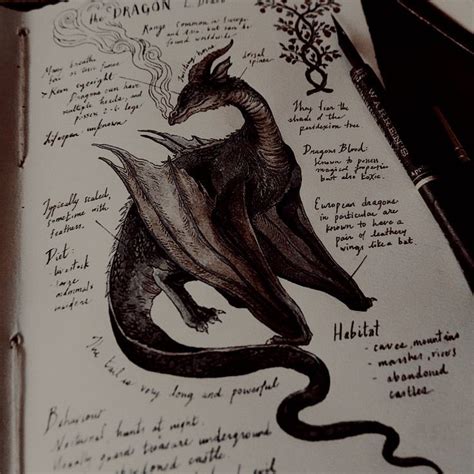 the DRAGON
Range Common in Europe
and Asia, but can be
found worldwide
Many breathe
fire or
Keen eyesight
Dragons can have
multiple heads, and
possess 2-6 legs
Lifespan unknown
horns
dorsal
spines
They fear the
shade of the
peredexion tree.
Dragons Blood:
known to possess
magical properties
but also toxic.
Typically scaled,
sometimes with
feathers.
European dragons
in particular are
known to have a
pair of leathery
wings like a bat.
Diet:
- livestock
- large
mammals
Habitat
- caves, mountains
- marshes, rivers
- abandoned
castles
The tail is very long and powerful
Behaviour
Nocturnal, hunts at night.
Usually guards treasure underground
abandoned castle